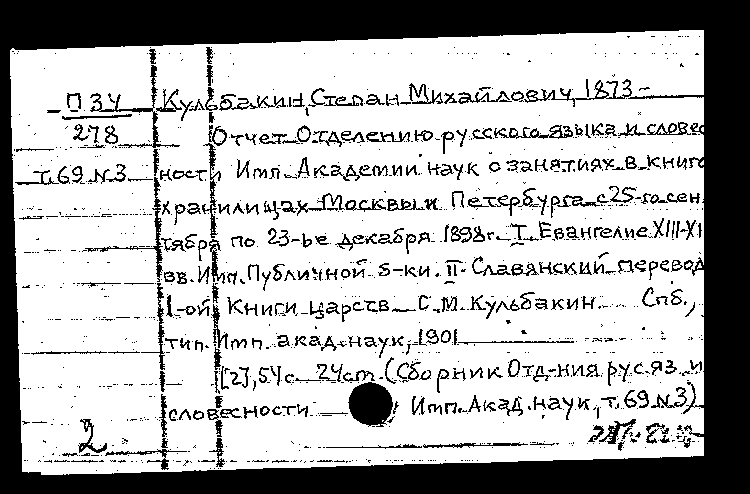 П 34
278
т.69 №3
Кульбакин, Степан Михайлович, 1873-
Отчет Отделению русского языка и словес
ности Имп. Академии наук о занятиях в книго
хранилищах Москвы и Петербурга с 25-го сен
тября по 23-ье декабря 1898г. I. Евангелие XIII-XI
вв. Имп. Публичной б-ки. II. Славянский перевод
1-ой Книги царств. С.М. Кульбакин. Спб.,
тип. Имп. акад. наук, 1901
[2], 54 с. 24 cm. (Сборник Отд-ния рус.яз. и
словесности Имп. Акад. наук, т.69 №3)
2